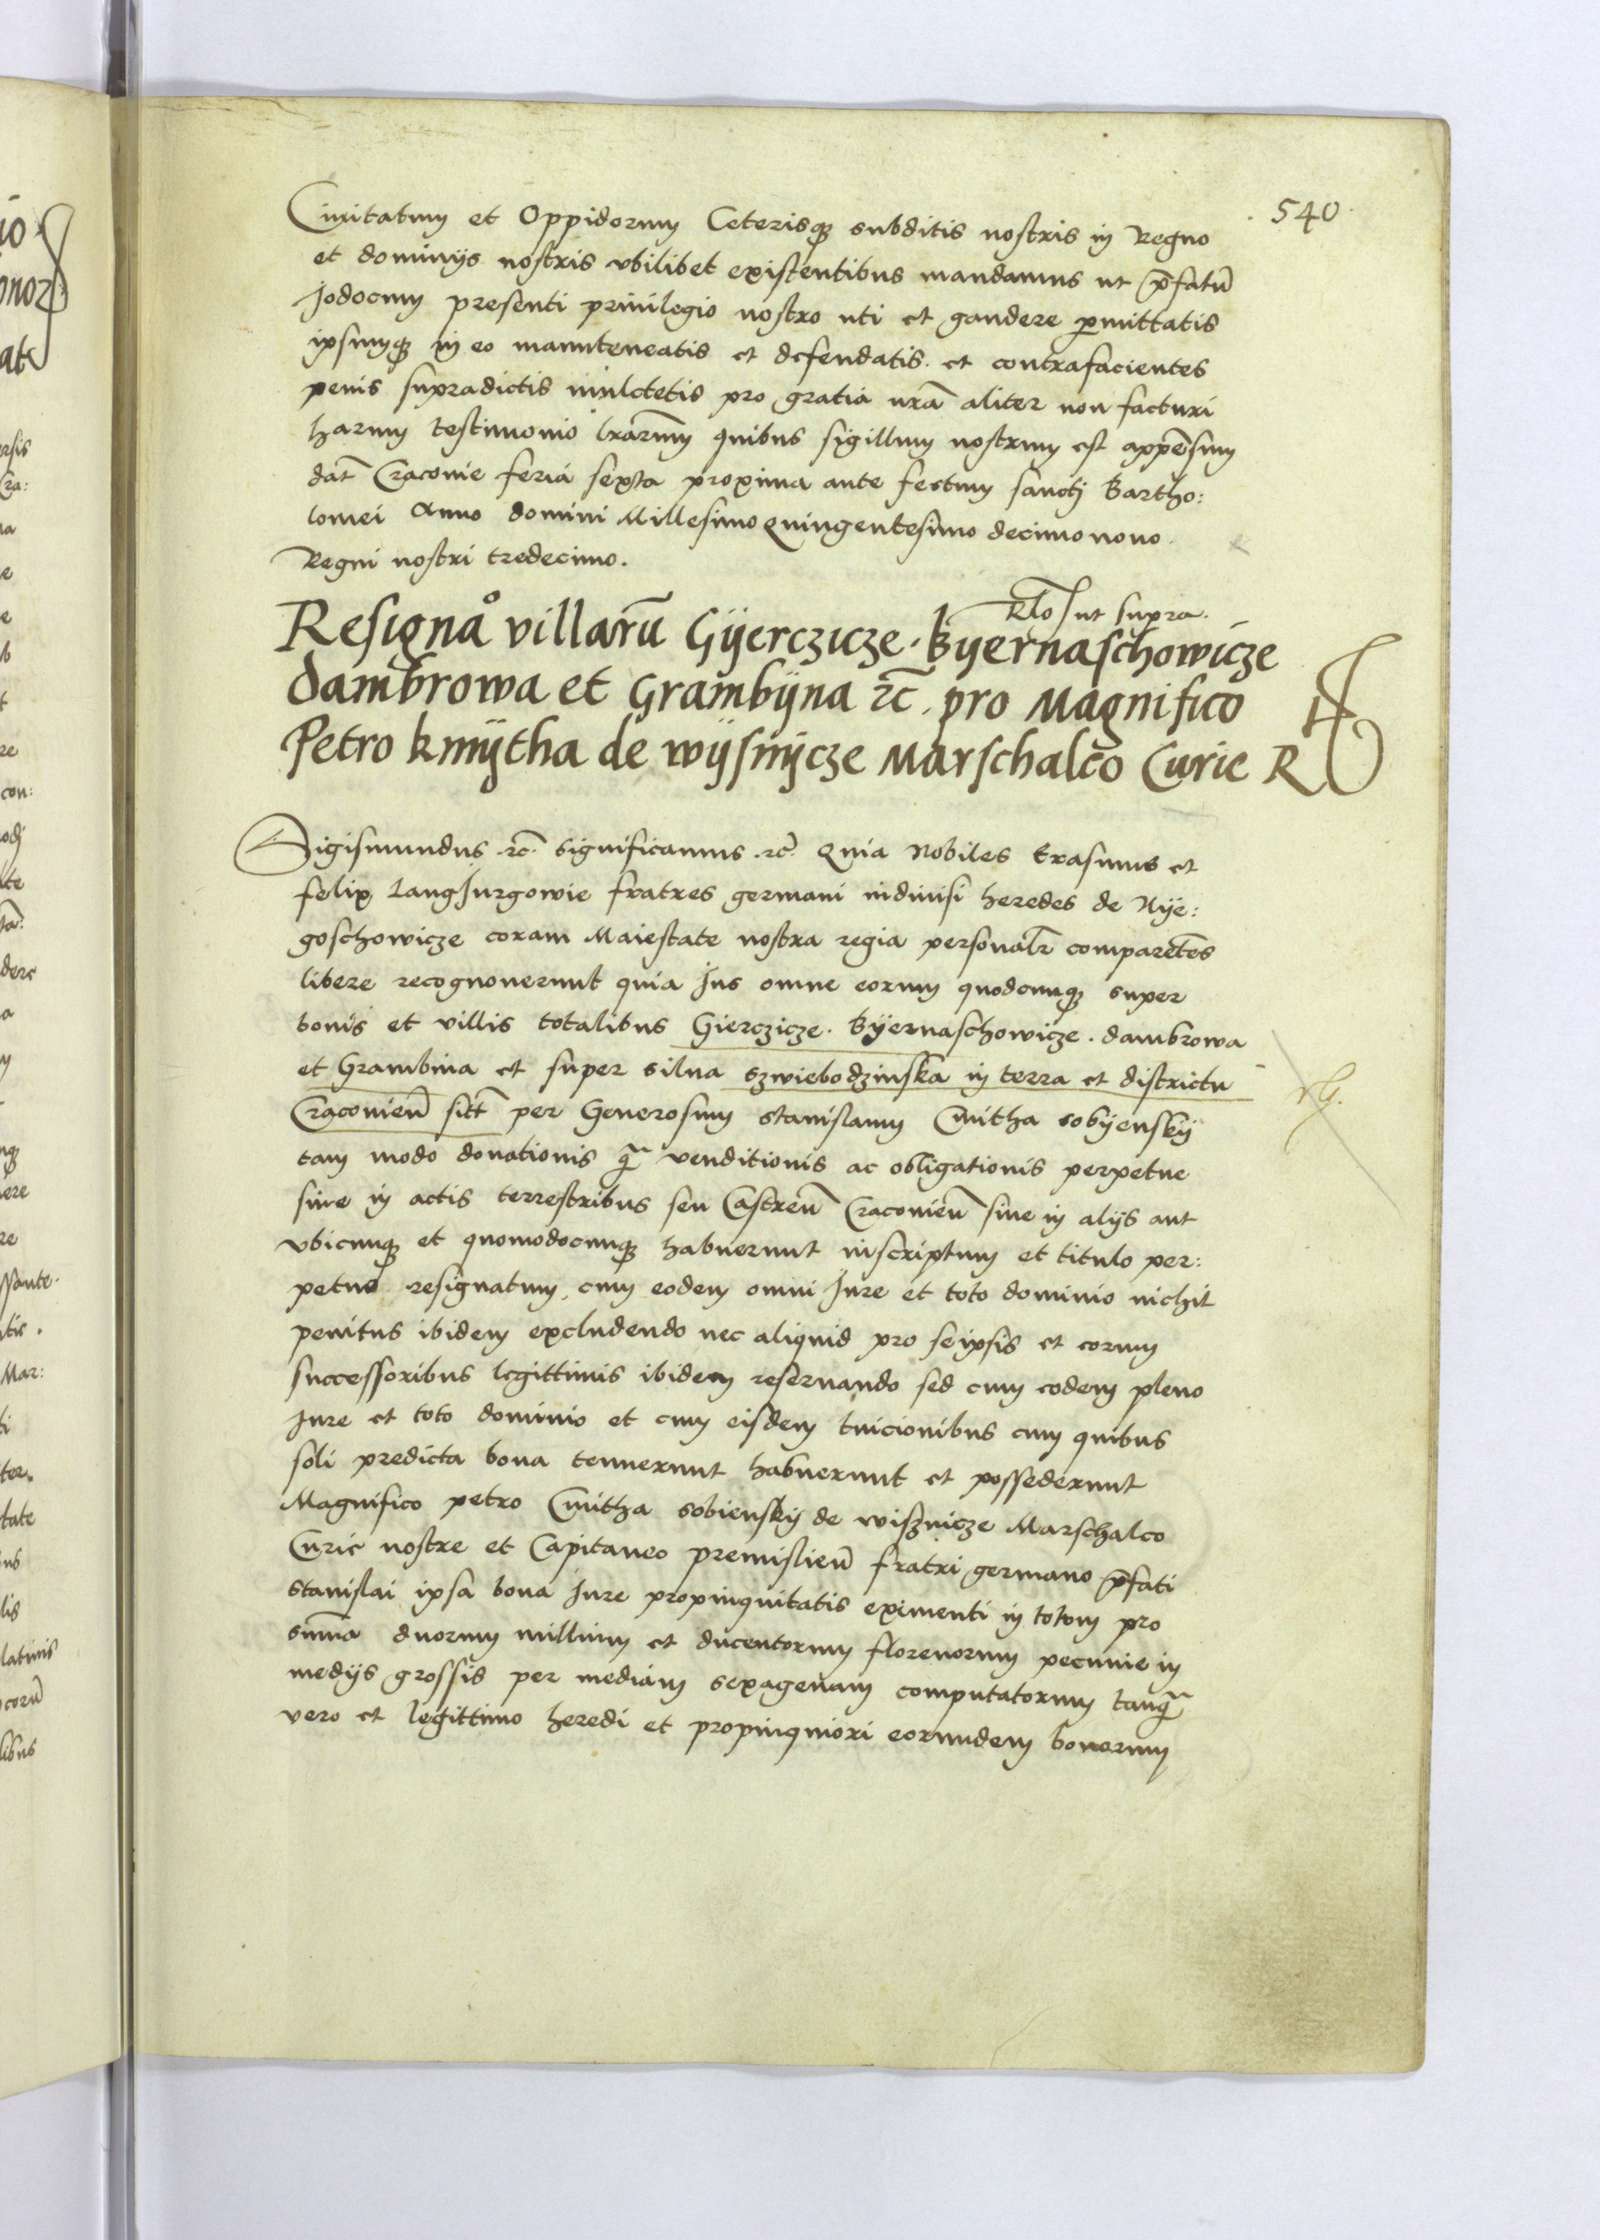 540
Ciuitatum et Oppidorum Ceterisqȝ subditis nostris in Regno
et dominijs nostris vbilibet existentibus mandamus ut p̄fatū
Jodocum presenti priuilegio nostro uti et gaudere permittatis
ipsumqȝ in eo manuteneatis et defendatis. et contrafacientes
penis supradictis mulctetis pro gratia nrā aliter non facturi
harum testimonio lrarum̄ quibus sigillum nostrum est appēsum
dat̄ Cracouie feria sexta proxima ante festum sanctj Bartho:
lomei Anno domini Millesimo Quingentesimo decimo nono
Regni nostri tredecimo.
Rlo ut supra.
Resignaᵒ villarū Gÿerczicze. Bÿernaschowicze
dambrowa et Grambÿna ⁊c̄. pro Magnifico
Petro kmÿtha de wÿsnÿcze Marschalco Curie R
Sigismundus .⁊c̄. Significamus .⁊c̄. Quia Nobiles Erasmus et
felix LangJurgowie fratres germani indiuisi heredes de Nÿe:
goschowicze coram Maiestate nostra regia personalr̄ comparētes
libere recognouerunt quia Jus omne eorum quodcunqȝ super
bonis et villis totalibus Gierczicze. Bÿernaschowicze. dambrowa
et Grambina et super silua szwiebodzinska in terra et districtu
Cracouien̄ sitt̄ per Generosum Stanislaum Cmitha sobyenskÿ
tam modo donationis q̄ venditionis ac obligationis perpetue
siue in actis terrestribus seu Castren̄ Cracouien̄ siue in alijs aut
vbicunqȝ et quomodocunqȝ habuerunt inscriptum et titulo per:
petuo resignatum, cum eodem omni Jure et toto dominio nichil
penitus ibidem excludendo nec aliquid pro seipsis et eorum
successoribus legittimis ibidem reseruando sed cum eodem pleno
Jure et toto dominio et cum eisdem tuicionibus cum quibus
soli predicta bona tenuerunt habuerunt et possederunt
Magnifico petro Cmitha sobienskÿ de wisznicze Marschalco
Curie nostre et Capitaneo premislien̄ fratri germano p̄fati
Stanislai ipsa bona Jure propinquitatis eximenti in totum pro
sum̄a duorum millium et ducentorum florenorum pecunie in
medijs grossis per mediam sexagenam computatorum tanq̄
vero et legittimo heredi et propinquiori eorundem bonorum